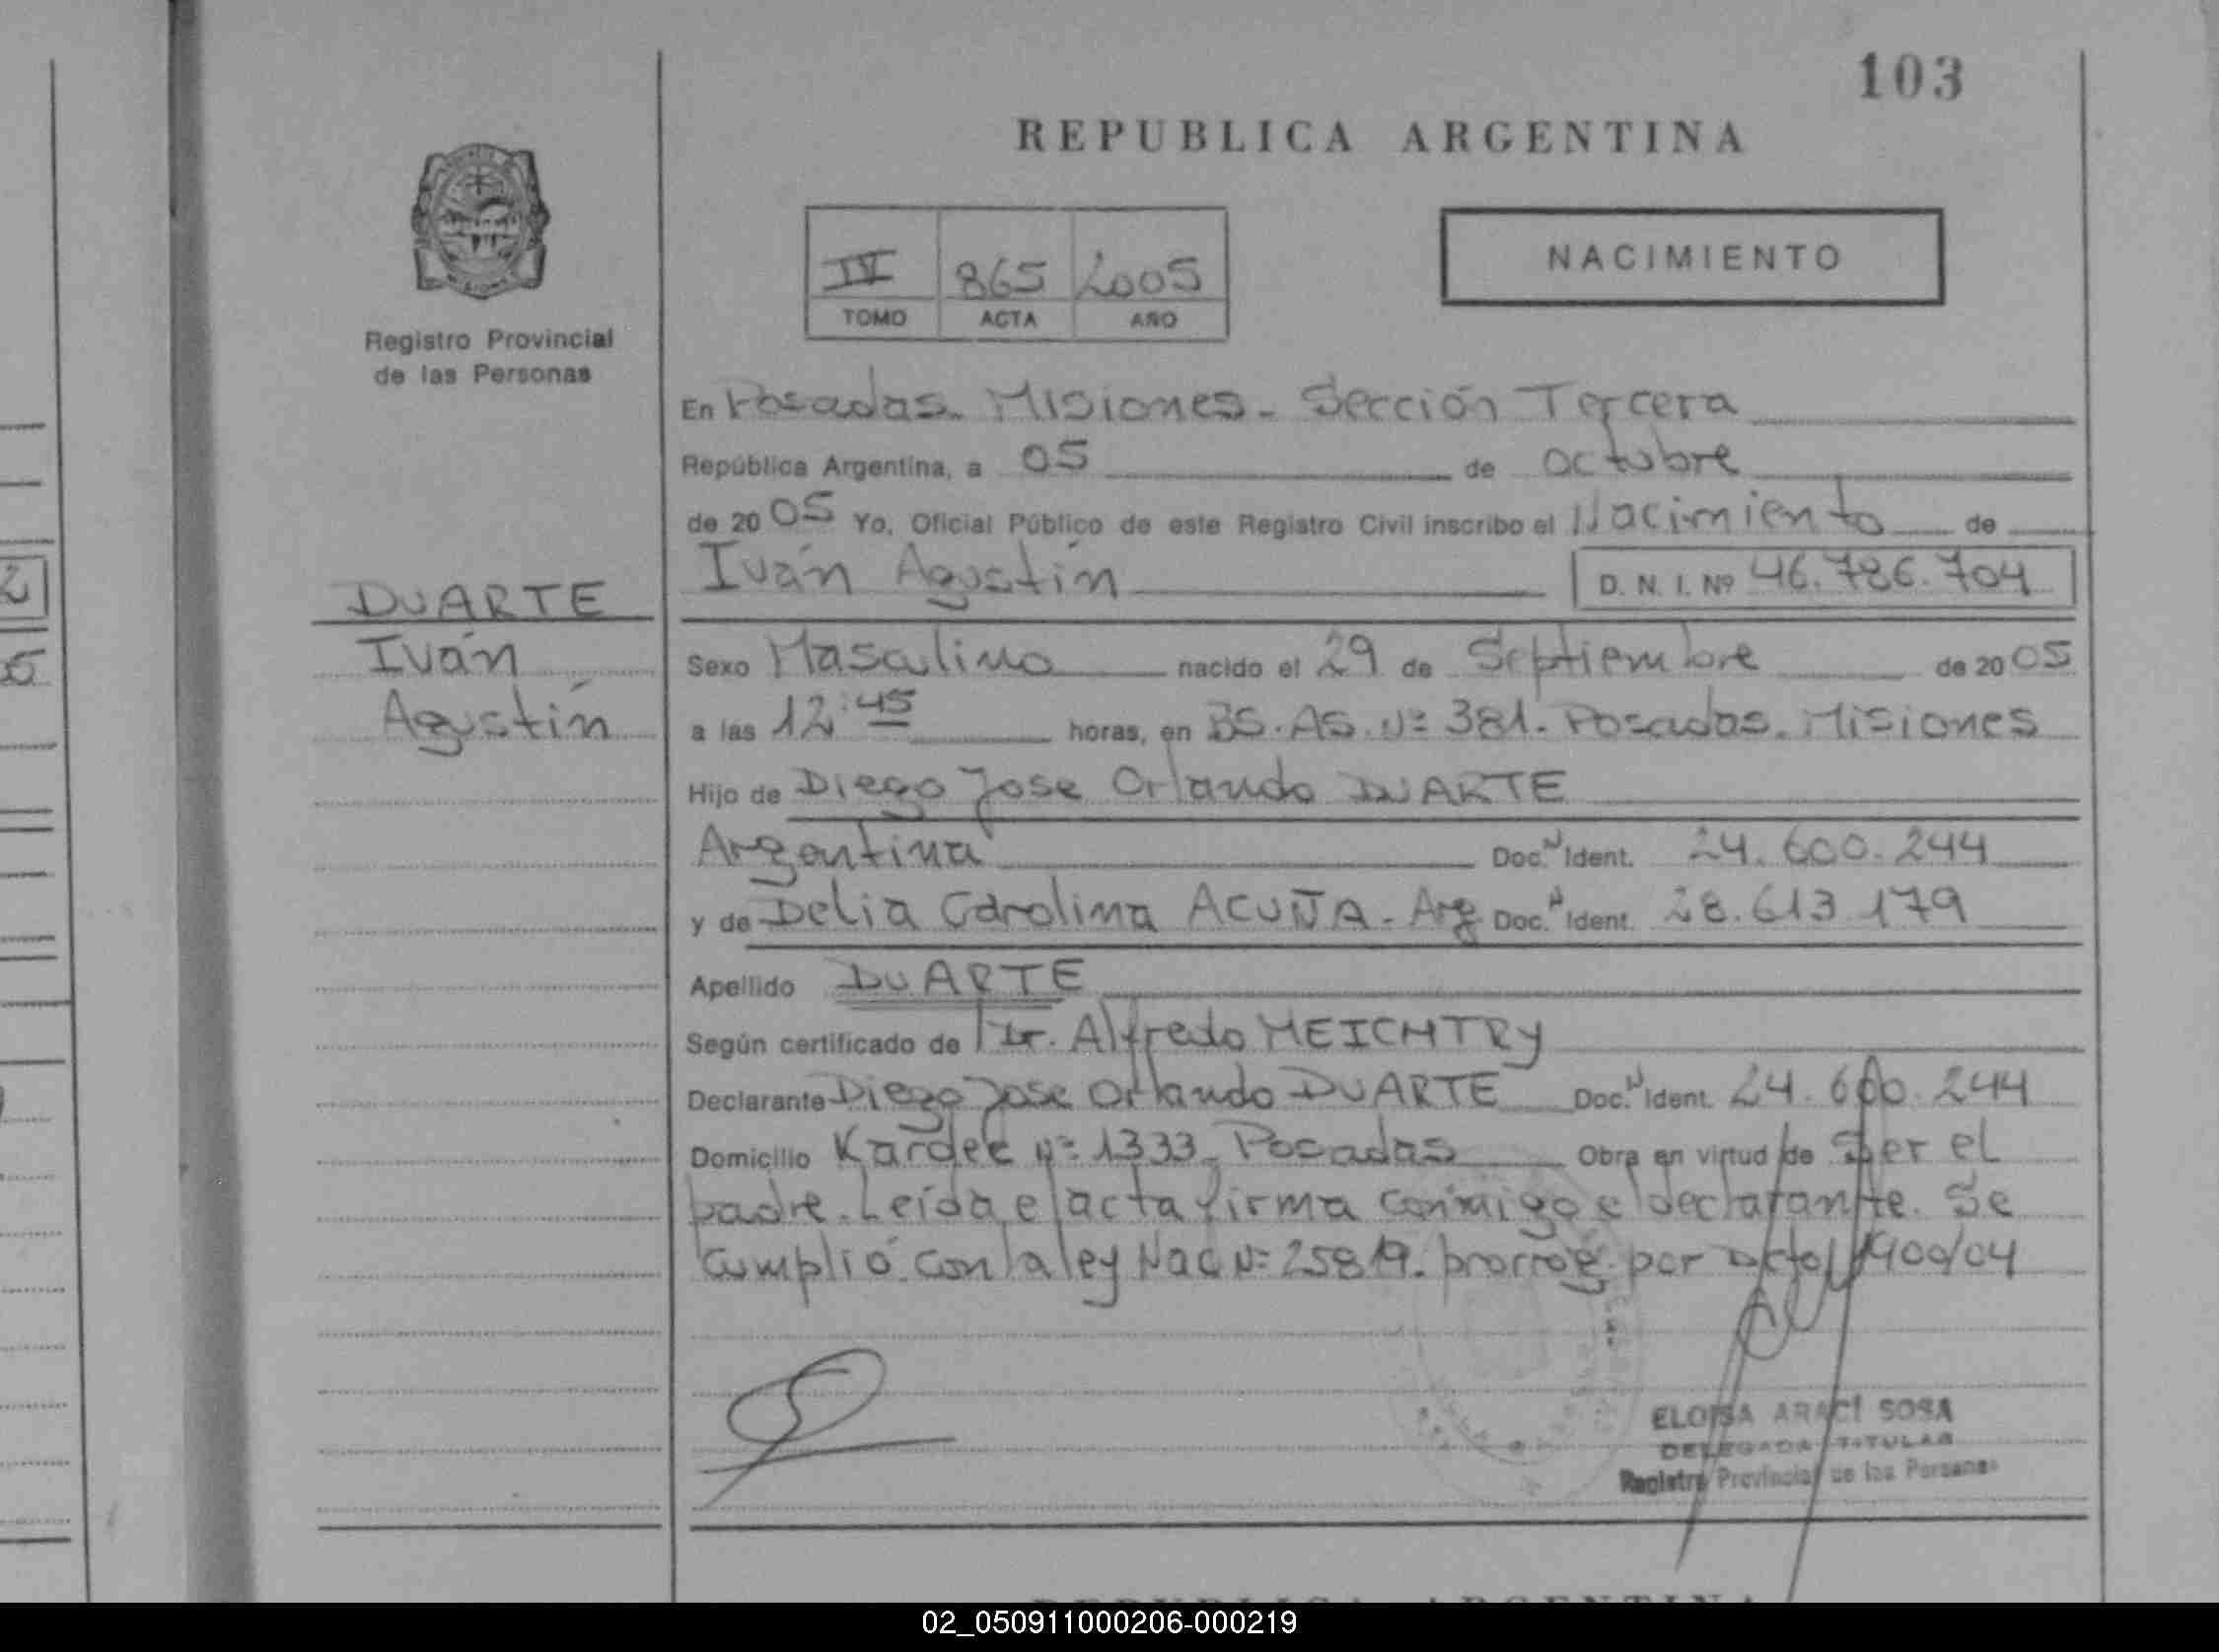 103
REPUBLICA ARGENTINA
IV 865 2005
TOMO ACTA AÑO
NACIMIENTO
Registro Provincial
de las Personas
DUARTE
Iván
Agustín
En Posadas. Misiones - Sección Tercera
República Argentina, a 05 de octubre
de 2005 Yo, Oficial Público de este Registro Civil inscribo el Nacimiento de
Iván Agustín D. N. I. Nº 46.786.704
Sexo Masculino nacido el 29 de Septiembre de 2005
a las 12:45 horas, en BS. AS. Nº 381. Posadas. Misiones
Hijo de Diego Jose Orlando DUARTE
Argentina Doc. N Ident. 24.600.244
y de Delia Carolina ACUÑA - Arg Doc. N Ident. 28.613.179
Apellido DUARTE
Según certificado de Dr. Alfredo MEICHTRY
Declarante Diego Jose Orlando DUARTE Doc. N Ident. 24.600.244
Domicilio Kardec Nº 1333 - Posadas Obra en virtud de Ser el
padre. Leída el acta firma conmigo el declarante. Se
cumplió con la ley Nac Nº 25819. prorrog. por Dcto 1900/04
ELOISA ARACI SOSA
DELEGADA TITULAR
Registro Provincial de las Personas
REPUBLICA ARGENTINA
02_050911000206-000219